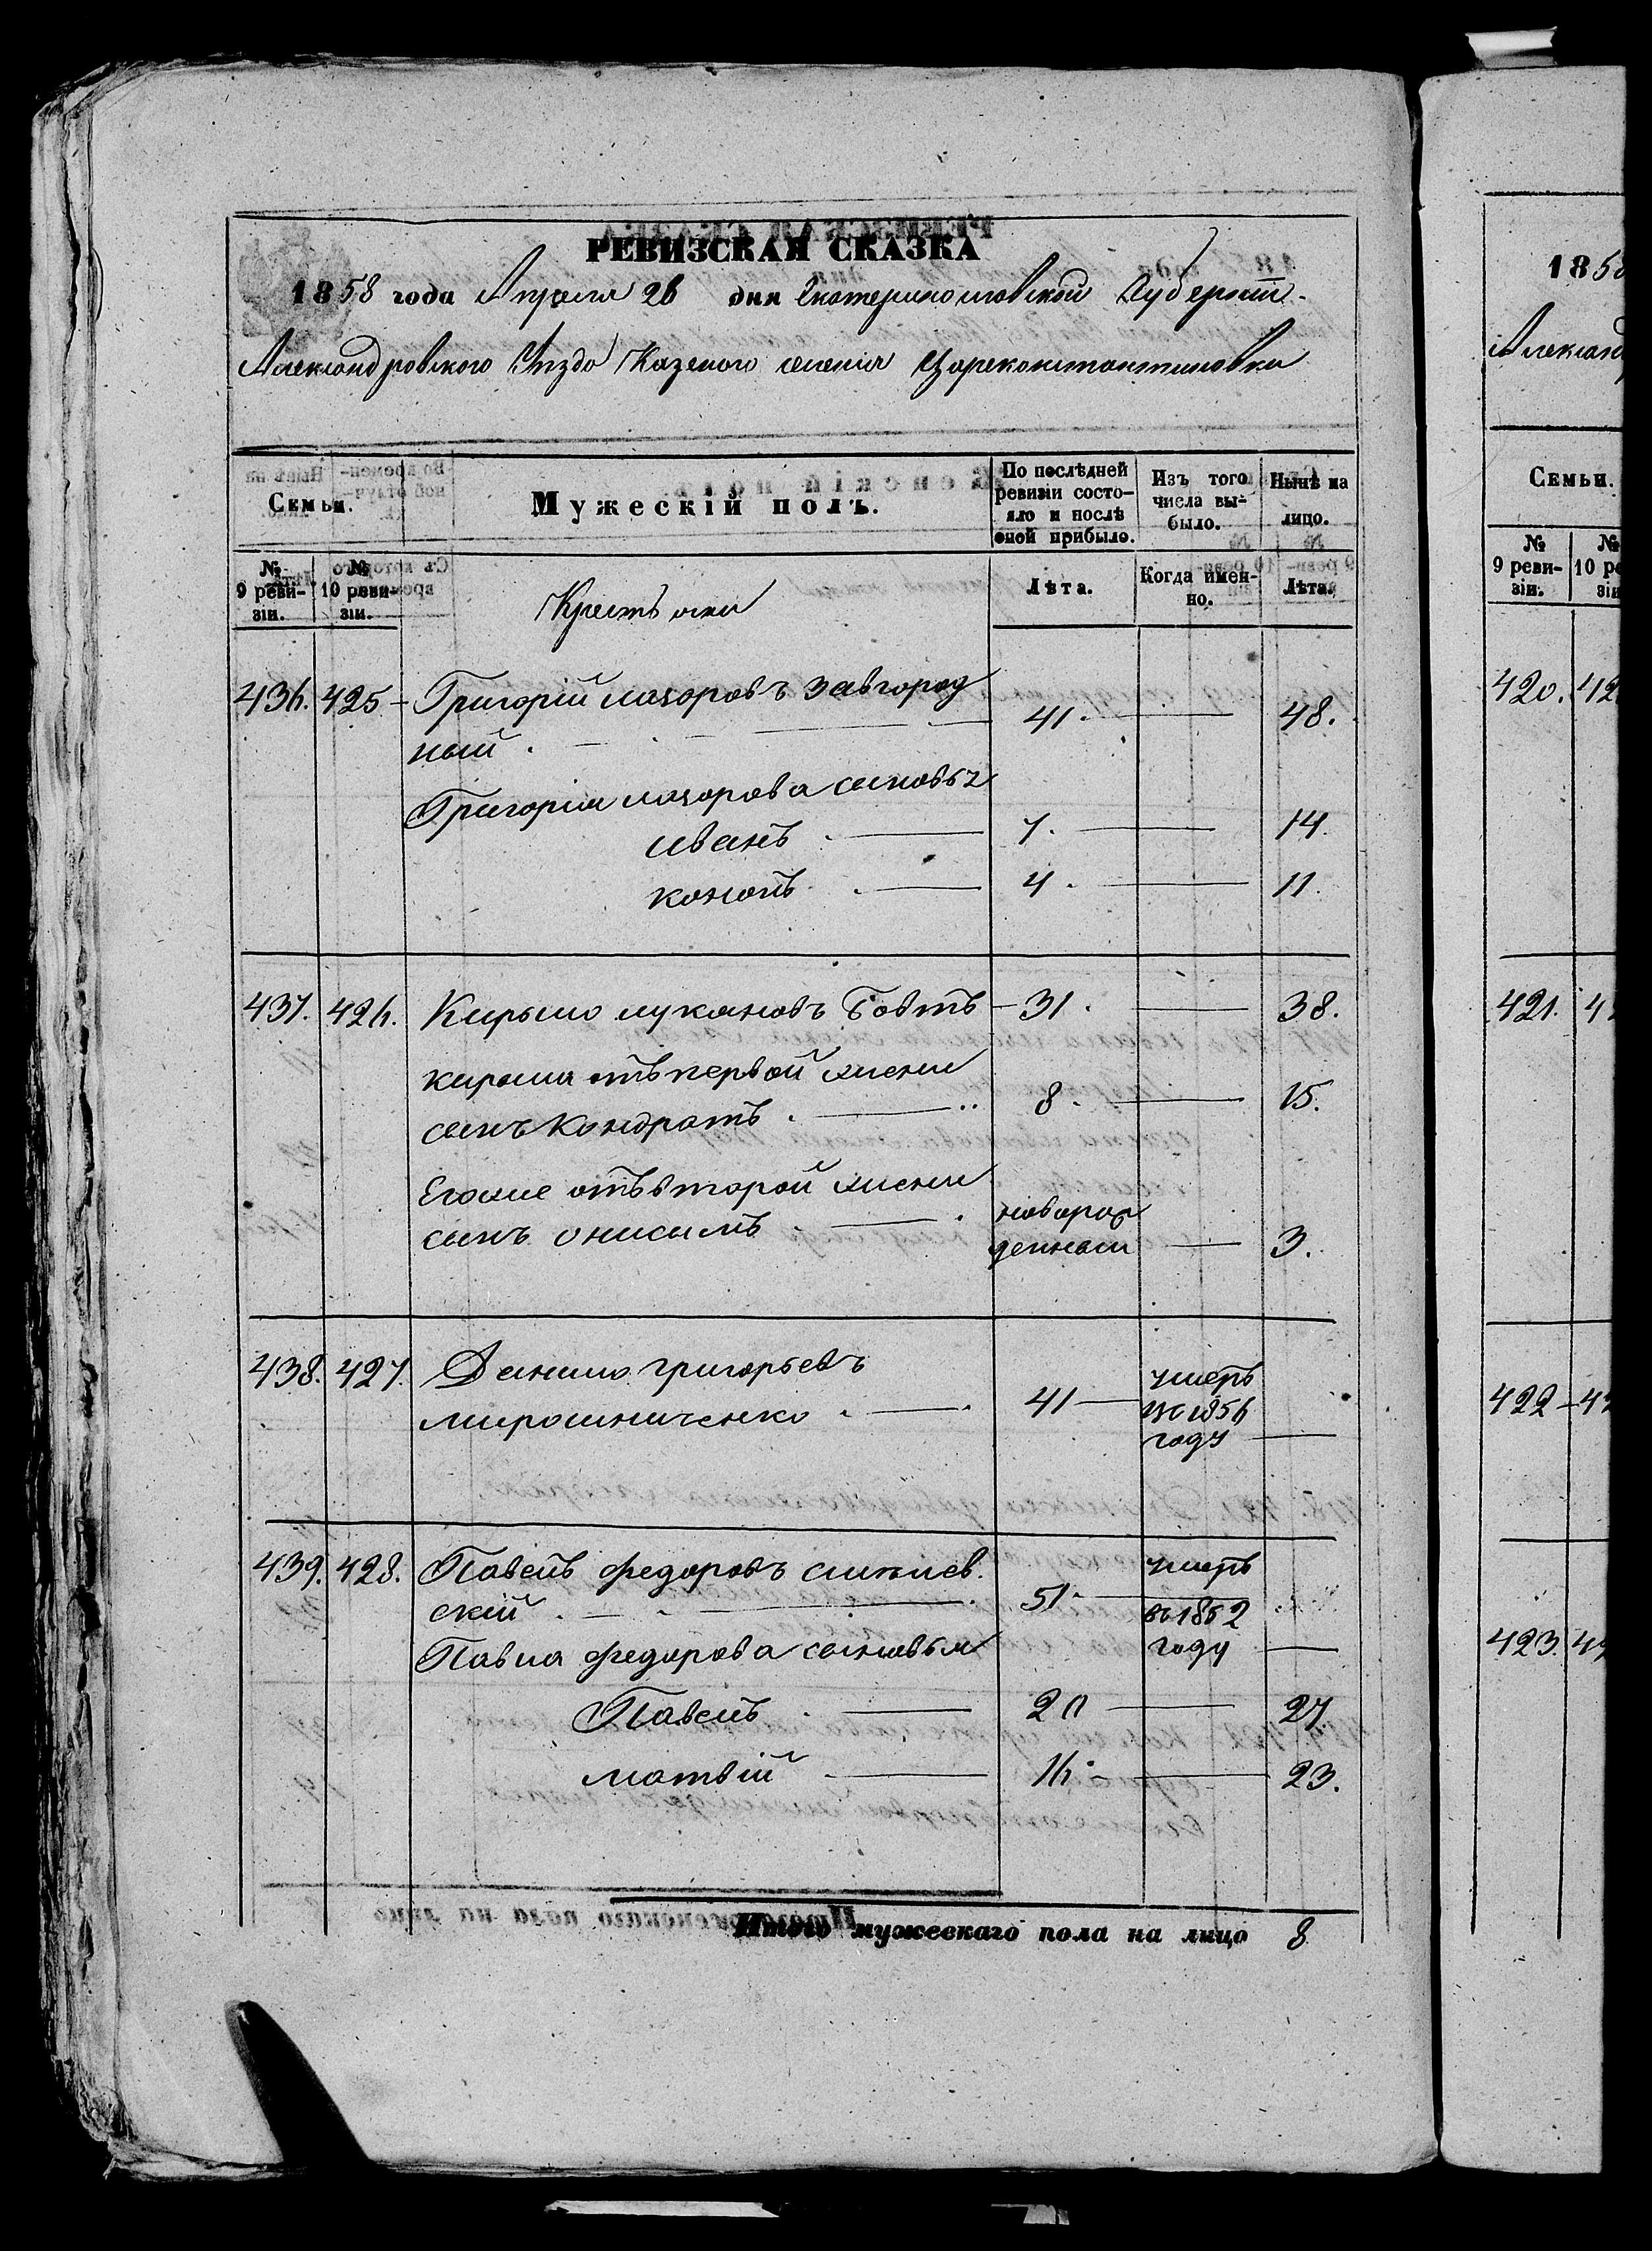 РЕВИЗСКАЯ СКАЗКА
1858 года Апреля 26 дня Екатеринославской Губернии
Александровского Уѣзда Казеного селенія Цареконстантиновки
Семьи.
Мужескій полъ.
По послѣдней ревизіи состояло и послѣ оной прибыло.
Изъ того числа выбыло.
Нынѣ на лицо.
№ 9 ревизіи.
№ 10 ревизіи.
Лѣта.
Когда именно.
Лѣта.
Крестьяни
436. 425 Григорій лазоровъ завгород
ный 41. 48.
Григорія лазорова сыновья
иванъ 7. 14.
кононъ 4. 11.
437. 426. Кирыло лукяновъ Бовтъ 31. 38.
кирыла отъ первой жены
сынъ кондратъ 8. 15.
Егоже отъ второй жены
сынъ онисымъ новорож
денный 3.
438. 427. Данило григорьевъ
мирошниченко 41 умеръ
въ 1856
году
439. 428. Павелъ федоровъ синиев.
скій 51 умеръ
въ 1852
году
Павла федорова сыновья
Павелъ 20 27
матвій 16 23.
Итого мужескаго пола на лицо 8
1858
Александ
Семьи.
№ 9 ревизіи.
420.
421.
422
423.